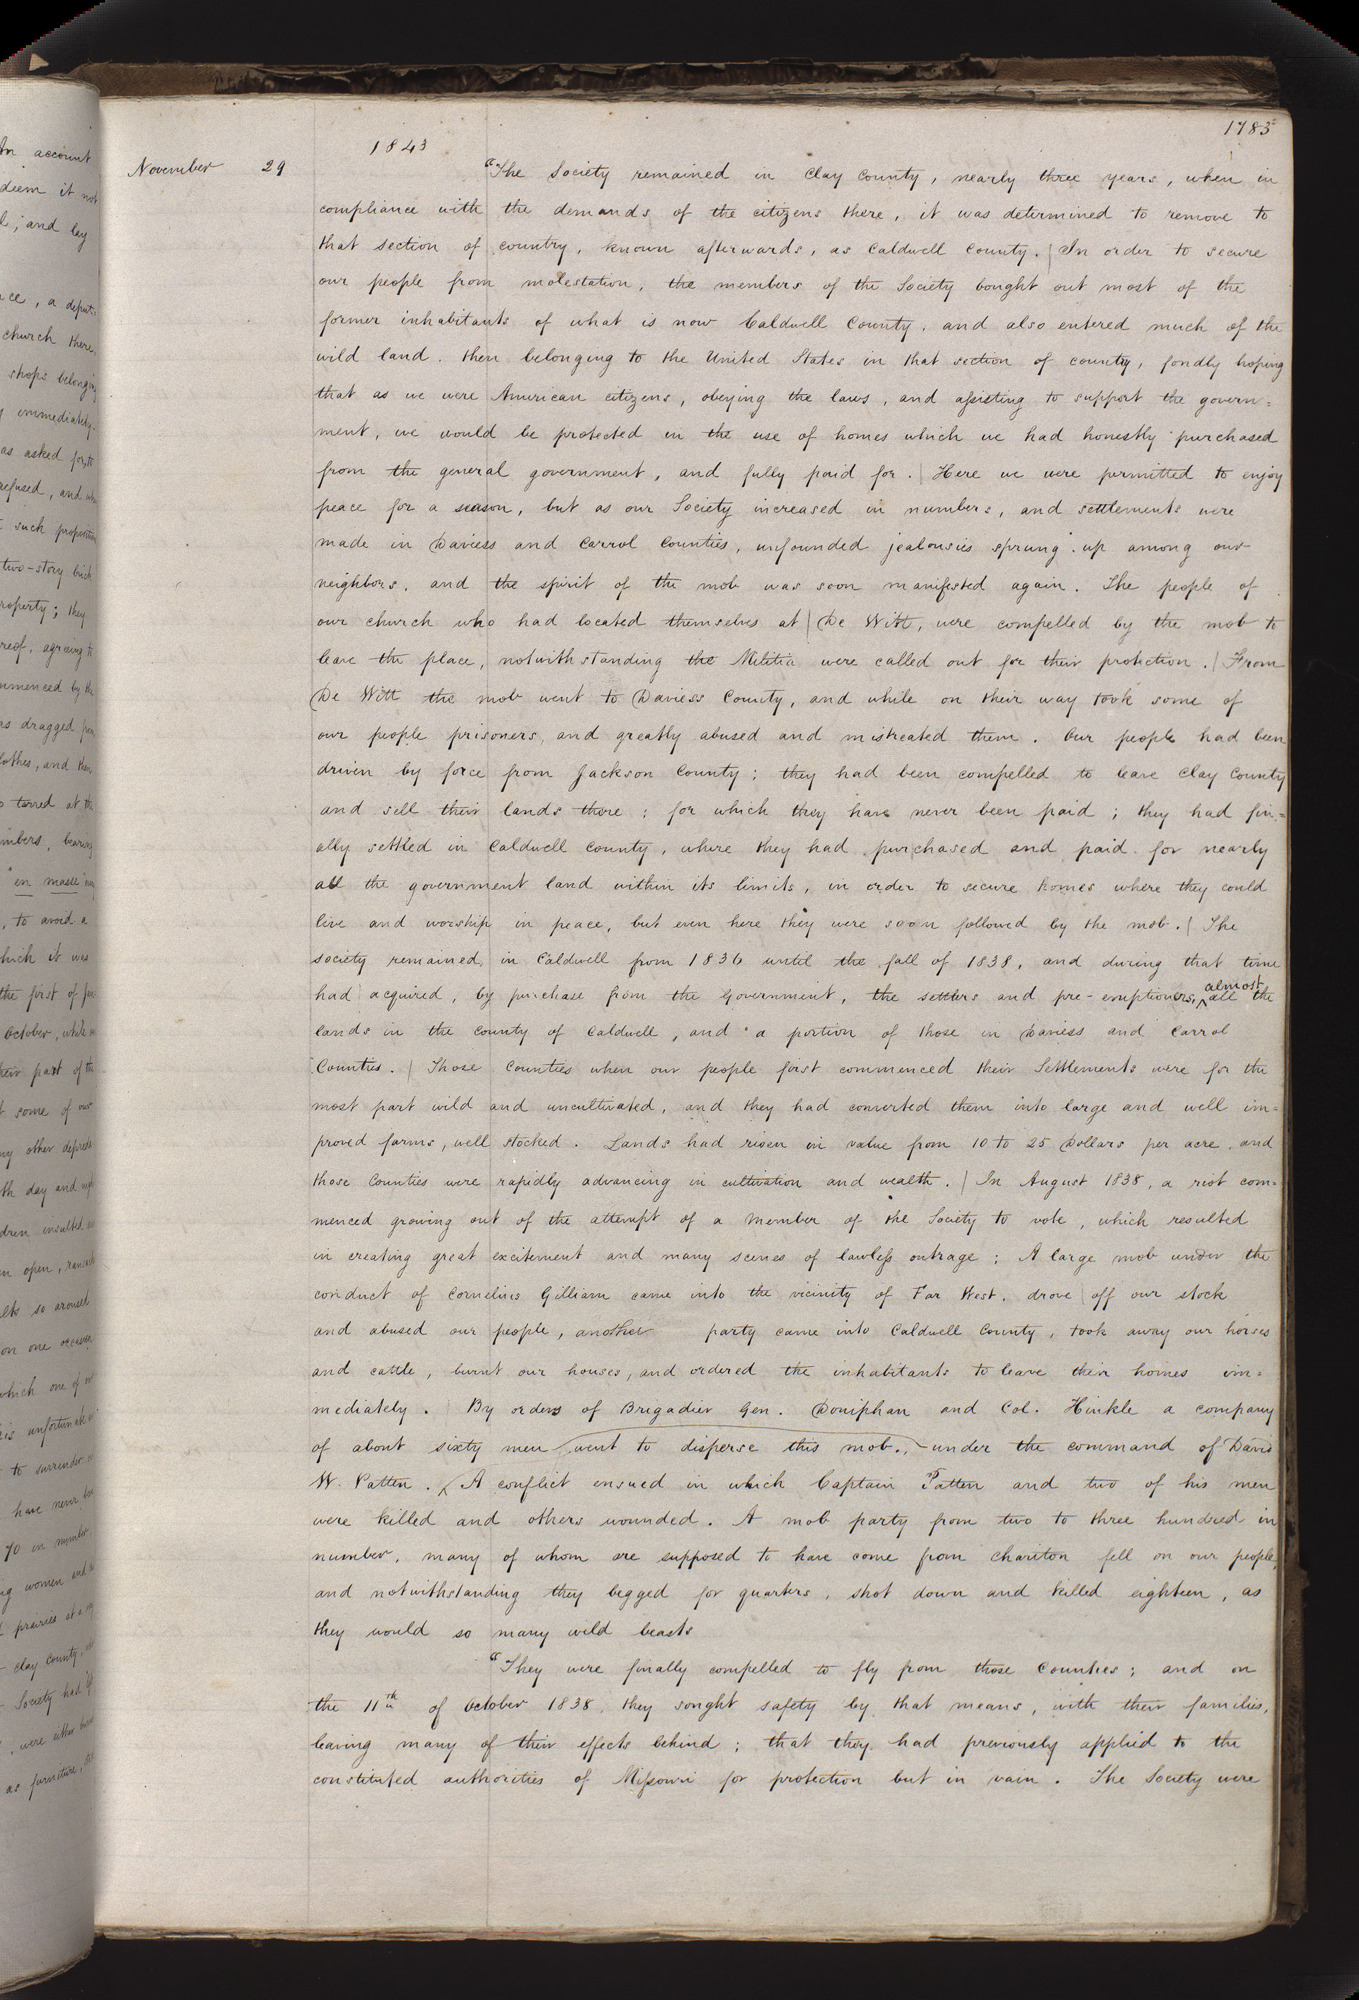 1785
1843
November 29
"The Society remained in Clay County, nearly three years, when in
compliance with the demands of the citizens there, it was determined to remove to
that section of country, known afterwards, as Caldwell County. | In order to secure
our people from molestation, the members of the Society bought out most of the
former inhabitants of what is now Caldwell County, and also entered much of the
wild land, then belonging to the United States in that section of country, fondly hoping
that as we were American citizens, obeying the laws, and assisting to support the govern=
ment, we would be protected in the use of homes which we had honestly purchased
from the general government, and fully paid for. | Here we were permitted to enjoy
peace for a season, but as our Society increased in numbers, and settlements were
made in Daviess and Carrol Counties, unfounded jealousies sprung up among our
neighbors, and the spirit of the mob was soon manifested again. The people of
our church who had located themselves at | De Witt, were compelled by the mob to
leave the place, notwithstanding the Militia were called out for their protection. | From
De Witt the mob went to Daviess County, and while on their way took some of
our people prisoners, and greatly abused and mistreated them. Our people had been
driven by force from Jackson County; they had been compelled to leave Clay County
and sell their lands there; for which they have never been paid; they had fin=
ally settled in Caldwell County, where they had purchased and paid for nearly
all the government land within its limits, in order to secure homes where they could
live and worship in peace, but even here they were soon followed by the mob. | The
society remained in Caldwell from 1836 until the fall of 1838, and during that time
had acquired, by purchase from the Government, the settlers and pre-emptioners, almost all the
lands in the County of Caldwell, and a portion of those in Daviess and Carrol
Counties. | Those Counties when our people first commenced their Settlements were for the
most part wild and uncultivated, and they had converted them into large and well im=
proved farms, well stocked. Lands had risen in value from 10 to 25 Dollars per acre, and
those Counties were rapidly advancing in cultivation and wealth. | In August 1838, a riot com=
menced growing out of the attempt of a Member of the Society to vote, which resulted
in creating great excitement and many scenes of lawless outrage; A large mob under the
conduct of Cornelius Gilliam came into the vicinity of Far West, drove off our stock
and abused our people, another party came into Caldwell County, took away our horses
and cattle, burnt our houses, and ordered the inhabitants to leave their homes im=
mediately. | By orders of Brigadier Gen. Doniphan and Col. Hinkle a company
of about sixty men went to disperse this mob, under the command of David
W. Patten. A conflict ensued in which Captain Patten and two of his men
were killed and others wounded. A mob party from two to three hundred in
number, many of whom are supposed to have come from Chariton fell on our people,
and notwithstanding they begged for quarters, shot down and killed eighteen, as
they would so many wild beasts
"They were finally compelled to fly from those Counties; and on
the 11th of October 1838, they sought safety by that means, with their families,
leaving many of their effects behind; that they had previously applied to the
constituted authorities of Missouri for protection but in vain. The Society were